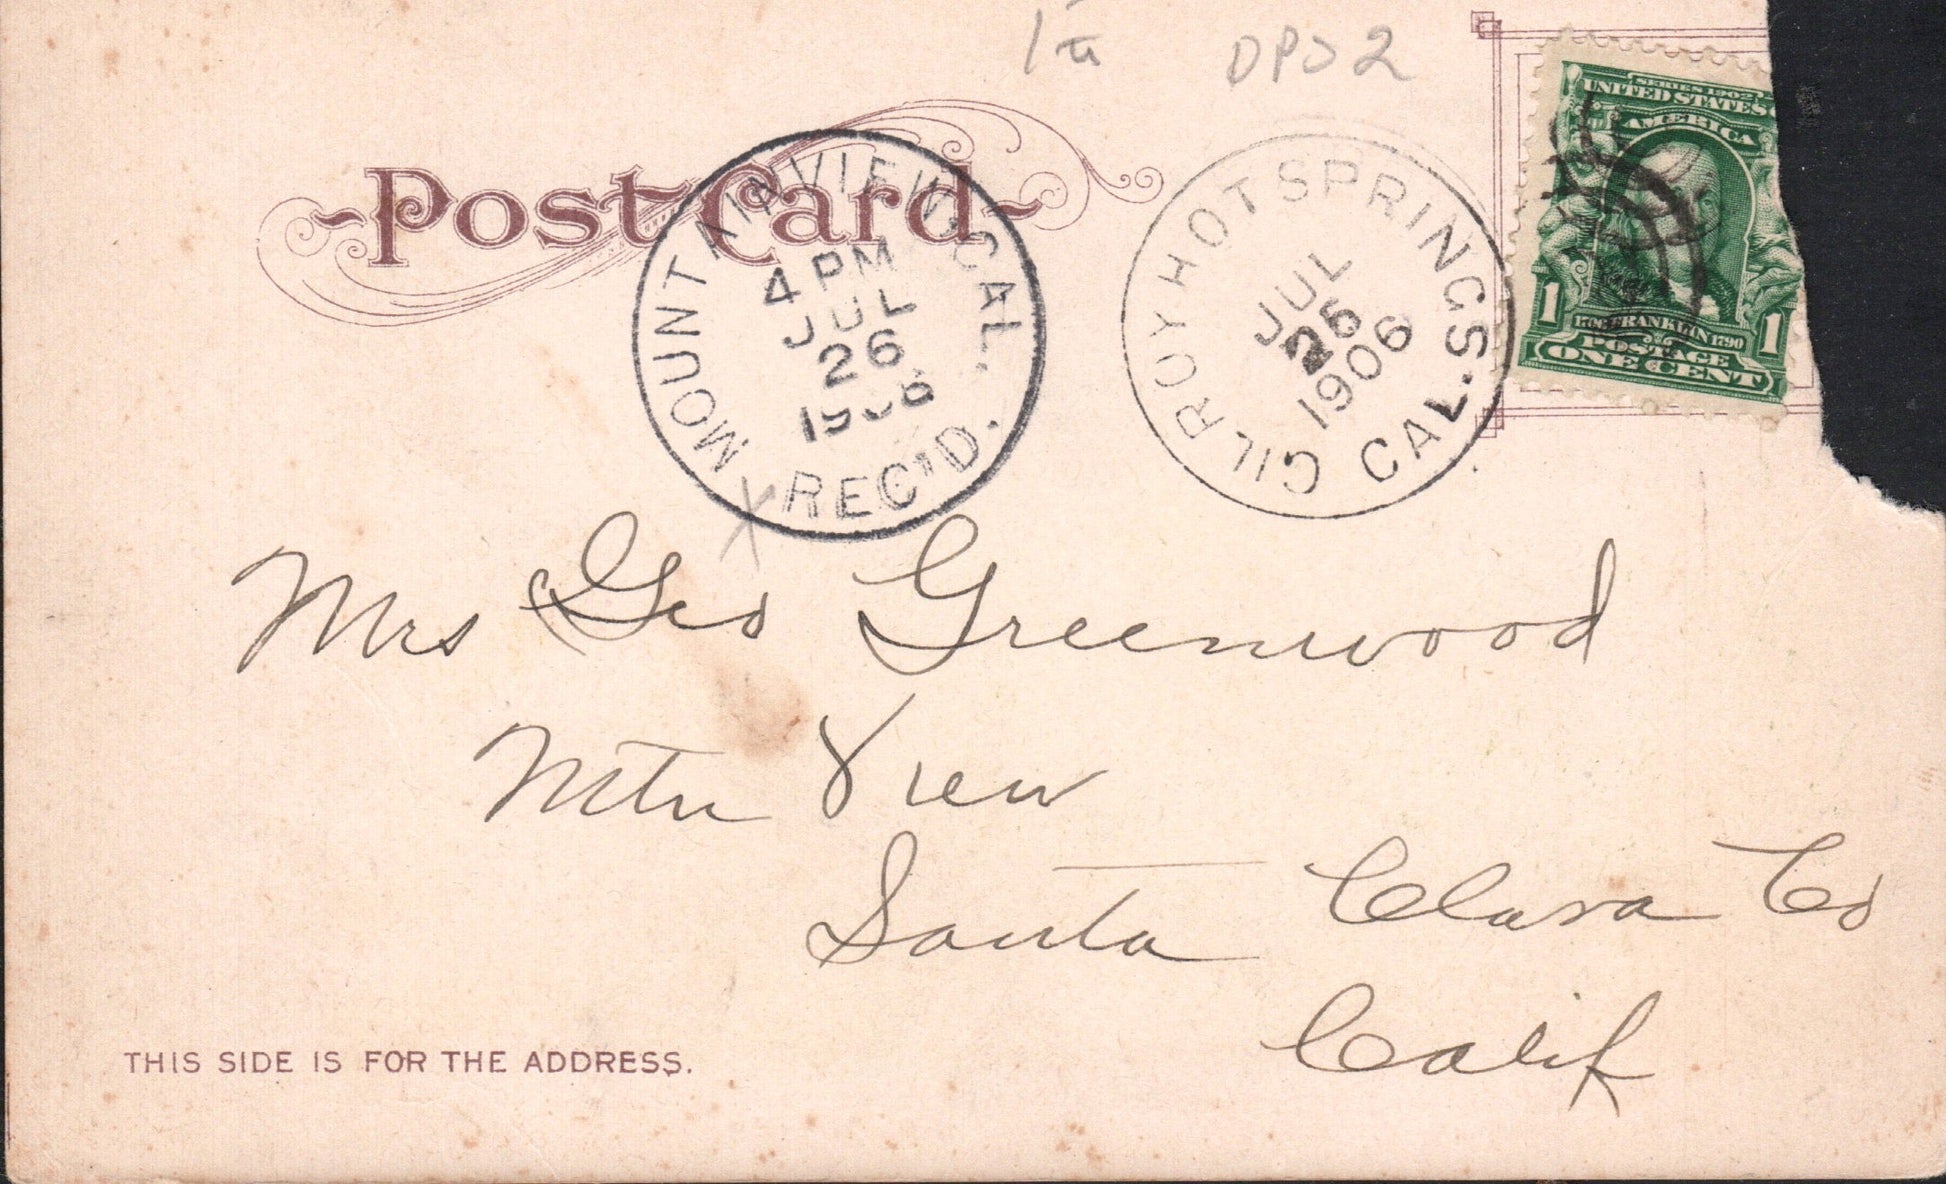 DPO 2
Post Card
MOUNTAINVIEW, CAL.
4 PM
JUL
26
1906
REC'D.
GILROY HOT SPRINGS
CAL.
JUL
1906
SERIES 1902
UNITED STATES
AMERICA
1 1706 FRANKLIN 1790 1
POSTAGE
ONE CENT
Mrs Geo Greenwood
Mtn View
Santa Clara Co
Calif
THIS SIDE IS FOR THE ADDRESS.